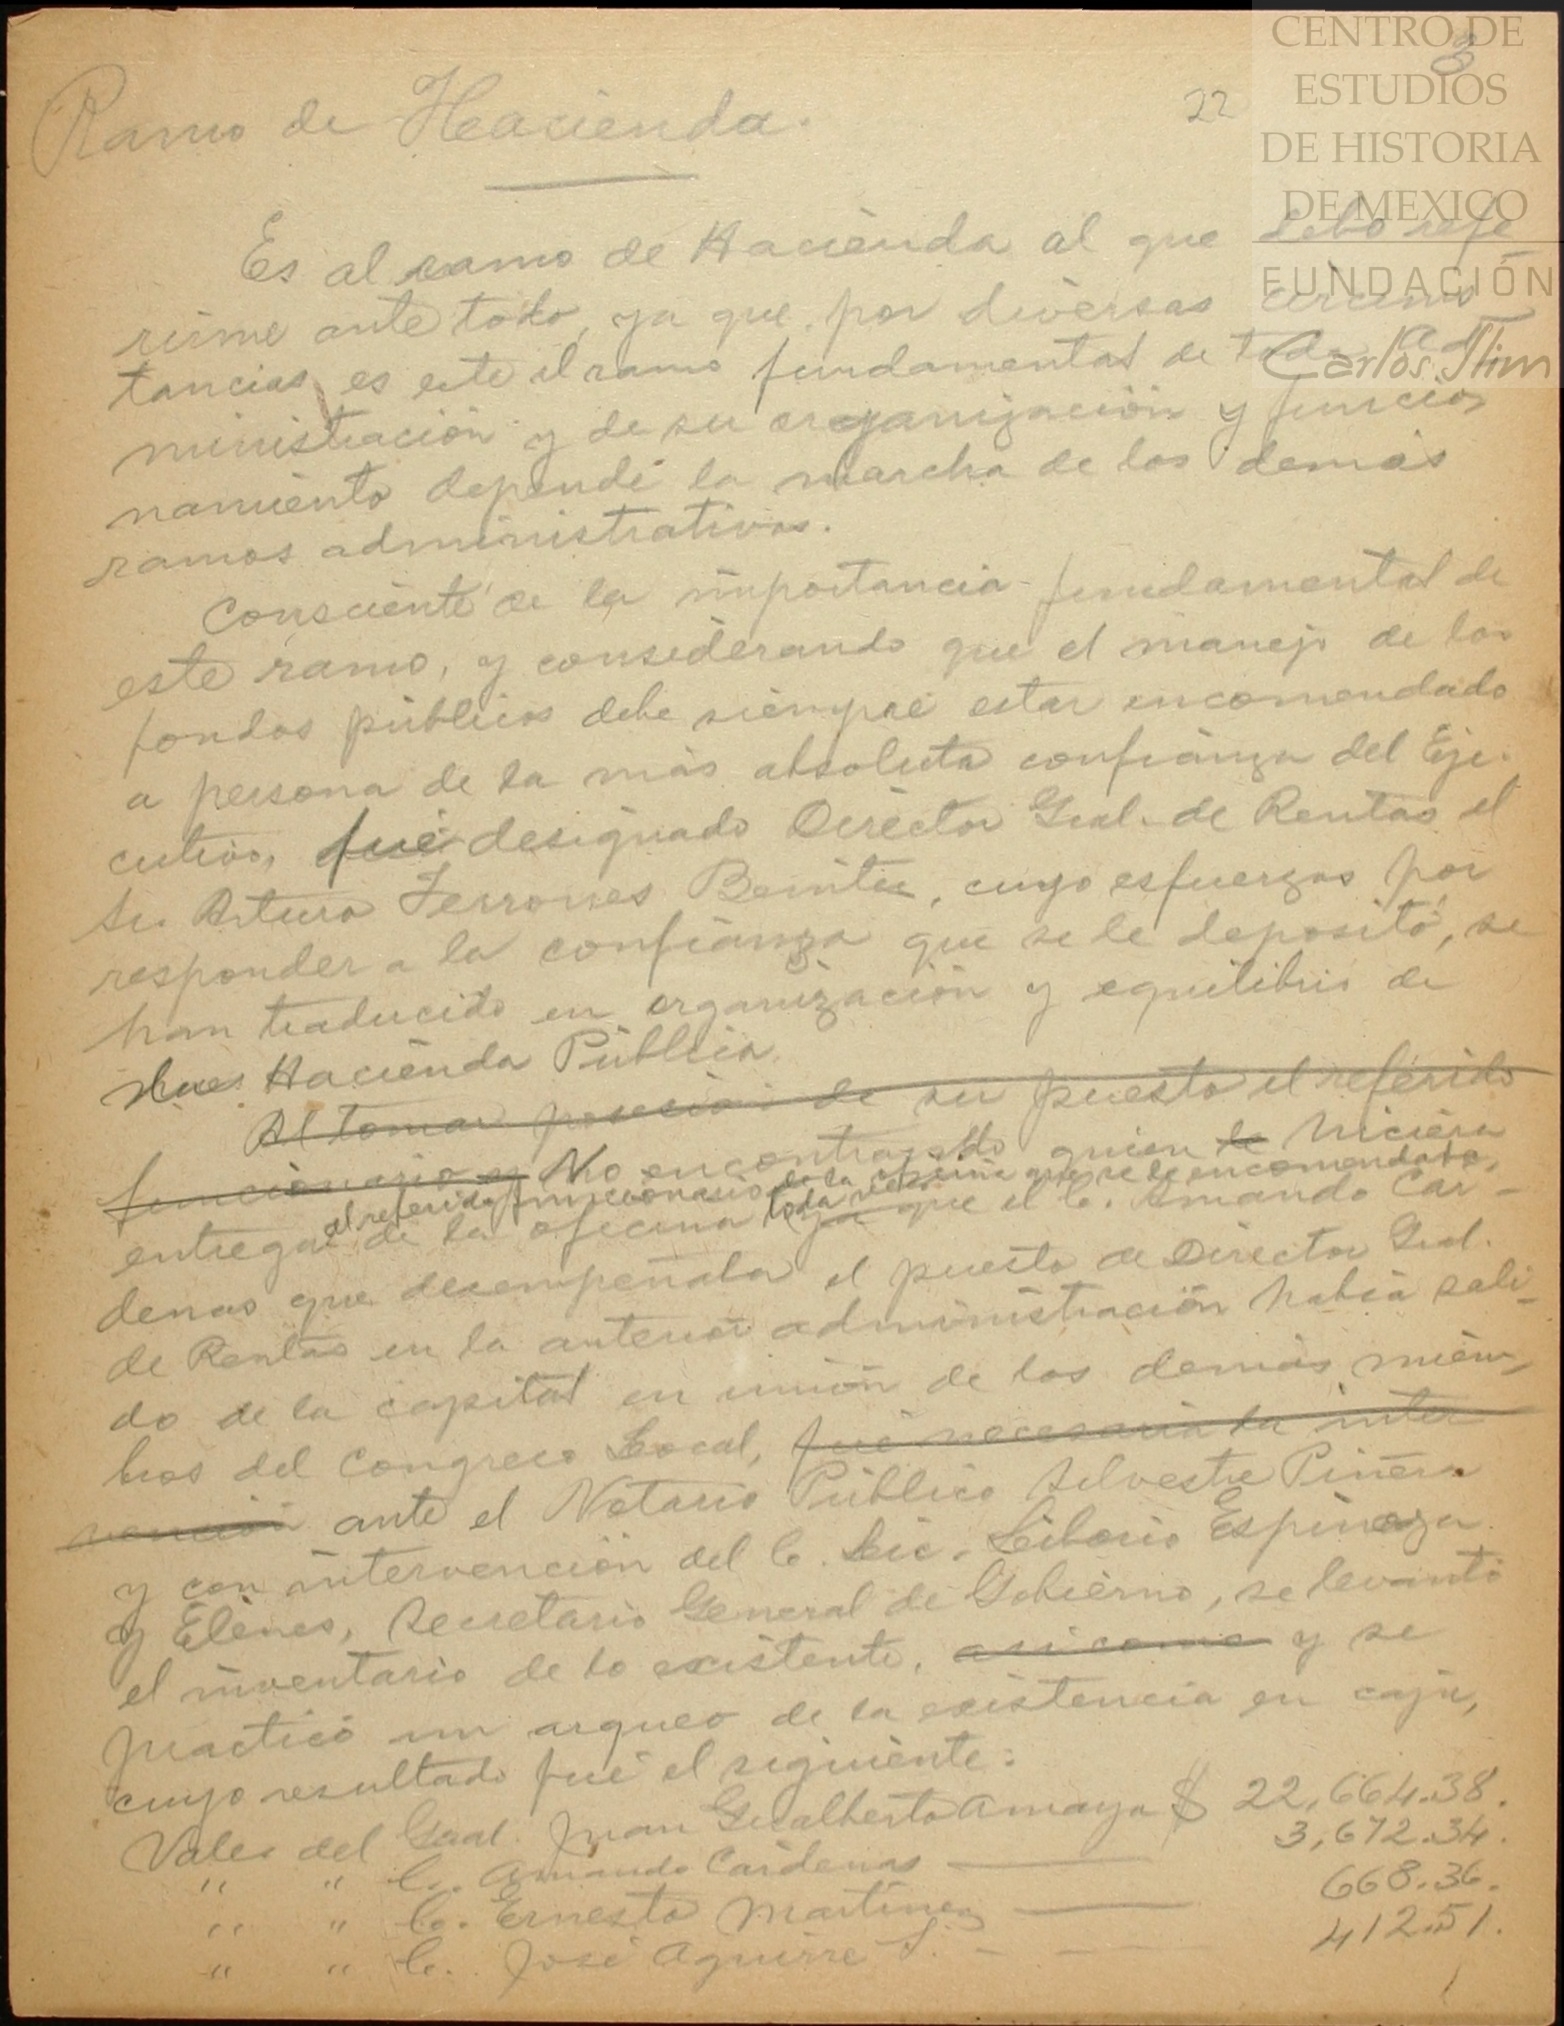 CENTRO DE
ESTUDIOS
DE HISTORIA
DE MEXICO
FUNDACIÓN
Carlos Slim
3
22
Ramo de Hacienda.
Es al ramo de Hacienda al que debo refe
rirme ante todo, ya que por diversas circuns
tancias, es este el ramo fundamental de toda Ad
ministración y de su organización y funcio
namiento depende la marcha de los demás
ramos administrativos.
Consciente de la importancia fundamental de
este ramo, y considerando que el manejo de los
fondos públicos debe siempre estar encomendado
a persona de la más absoluta confianza del Eje-
cutivo, fué designado Director Gral. de Rentas el
Sr. Arturo Terrones Benítez, cuyo esfuerzos por
responder a la confianza que se le depositó, se
han traducido en organización y equilibrio de
Hacienda Pública.
Al tomar posesión de su puesto el referido
funcionario y No encontrando quien le hiciera
al referido funcionario de la oficina que se le encomendaba,
entrega de la oficina toda vez ya que el C. Amando Car-
denas que desempeñaba el puesto de Director Gral.
de Rentas en la anterior administración había sali-
do de la capital en unión de los demás miem-
bros del Congreso Local, fué necesaria la inter
vención ante el Notario Público Silvestre Piñera
y con intervención del C. Lic. Liborio Espinoza
y Elenes, Secretario General de Gobierno, se levantó
el inventario de lo existente, asi como y se
practicó un arqueo de la existencia en caja,
cuyo resultado fué el siguiente:
Vales del Gral. Juan Gualberto Amaya $ 22,664.38.
" " C. Amando Cardenas — 3,672.34.
" " C. Ernesto Martínez — 668.36.
" " C. José Aguirre S. - - — 412.51.